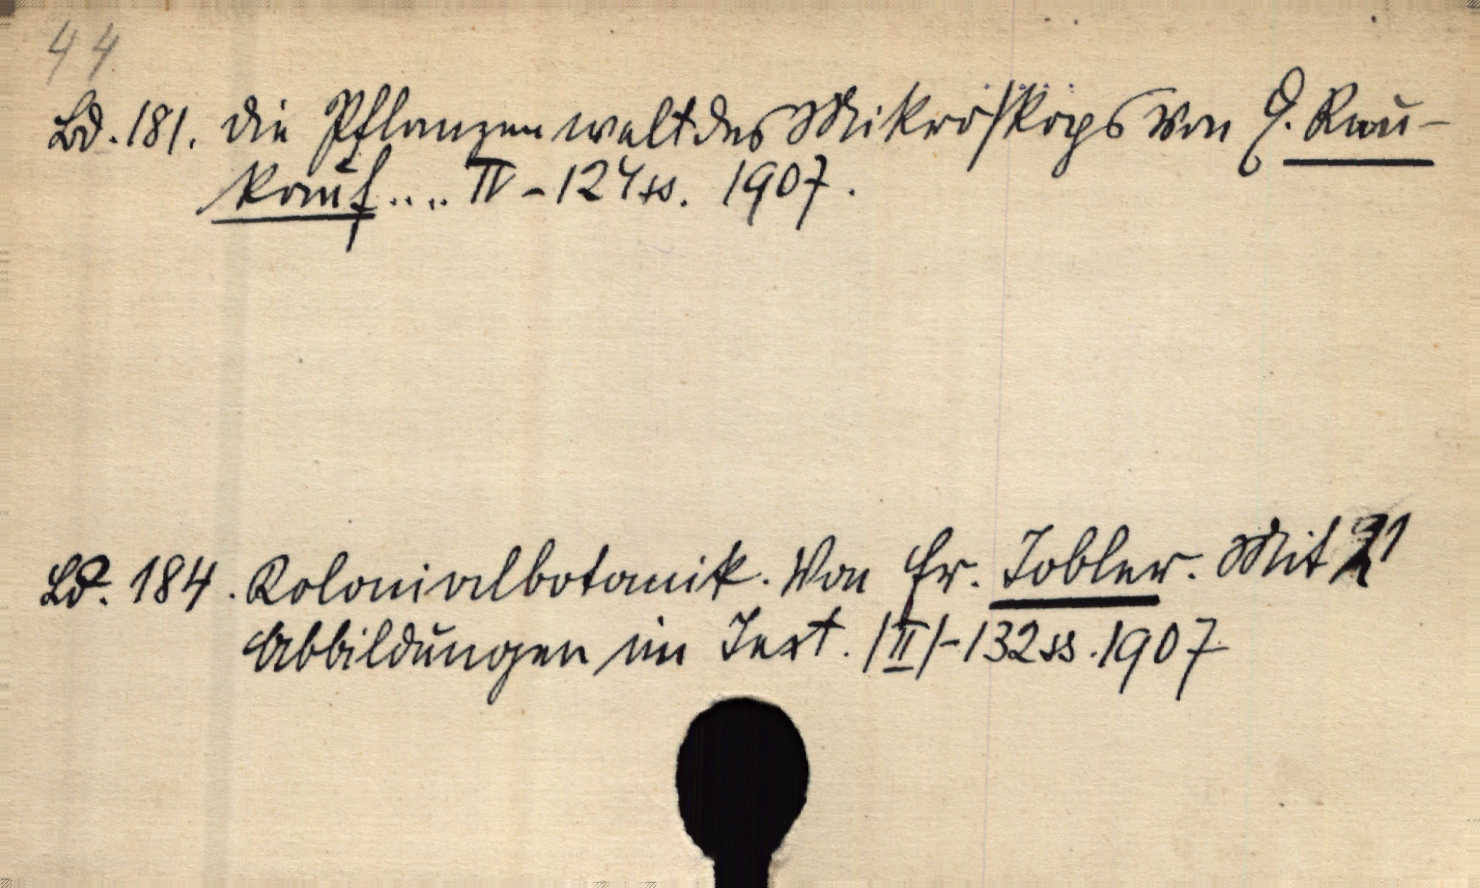 44
Bd. 181. Die Pflanzenwelt des Mikroskops von E. Reu-
kauf .... IV - 124 ss. 1907.
Bd. 184. Kolonialbotanik. Von Fr. Tobler. Mit 21
Abbildungen im Text. /II/ - 132 ss. 1907